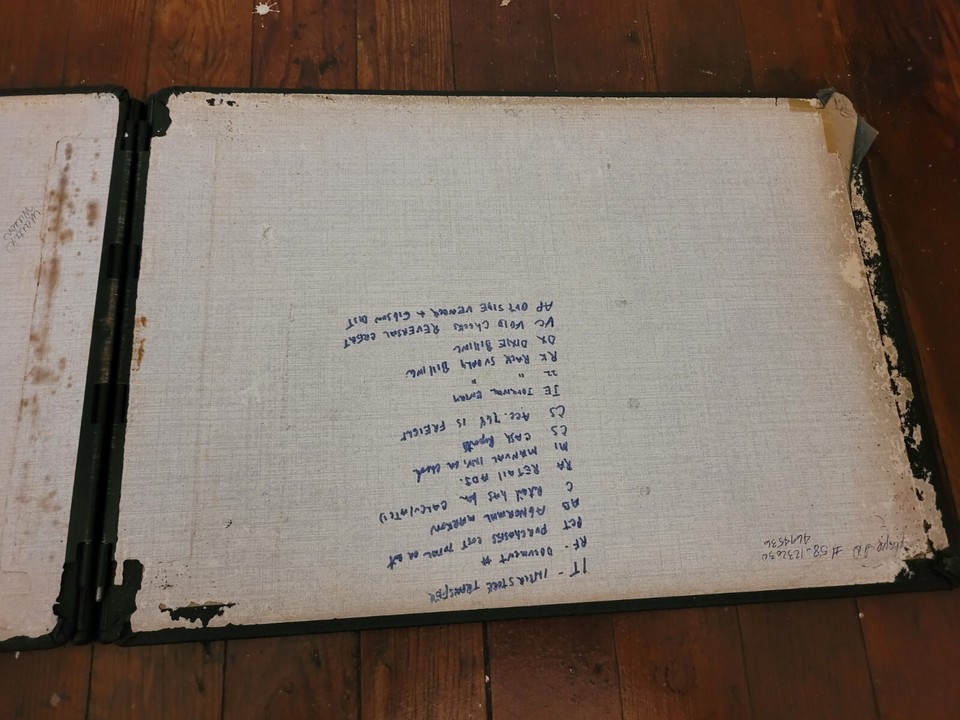 IT - INTER STORE TRANSFER
RF - DOCUMENT #
PCT PURCHASES COST TOTAL OR
AB ABNORMAL MARKON
C Retail has been CALCULATED
RA RETAIL ADJ.
MI MANUAL INV. or check
CS CASH Reports
CS Acc. 768 IS FREIGHT
JE JOURNAL ENTRY
22 " "
RK RACK SUPPLY BILLING
DX DIXIE BILLING
VC VOID CHECKS REVERSAL CREDIT
AP OUT SIDE VENDOR + GIBSON DIST
# 58-1232630
4694536